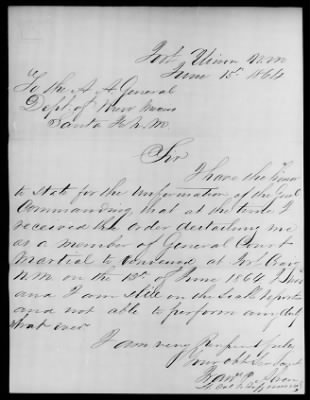 Fort Union N.M.
June 15th 1864
To the A. A. General
Dept. of New Mexico
Santa Fe N.M.
Sir
I have the honor
to state for the information of the Genl
Commanding that at the time I
received the order detailing me
as a member of General Court
Martial to convened at Fort Craig
N.M. on the 15th of June 1864 I was
and I am still on the Sick Report
and not able to perform any duty
what ever
I am very Respectfully
Your Obt Servant